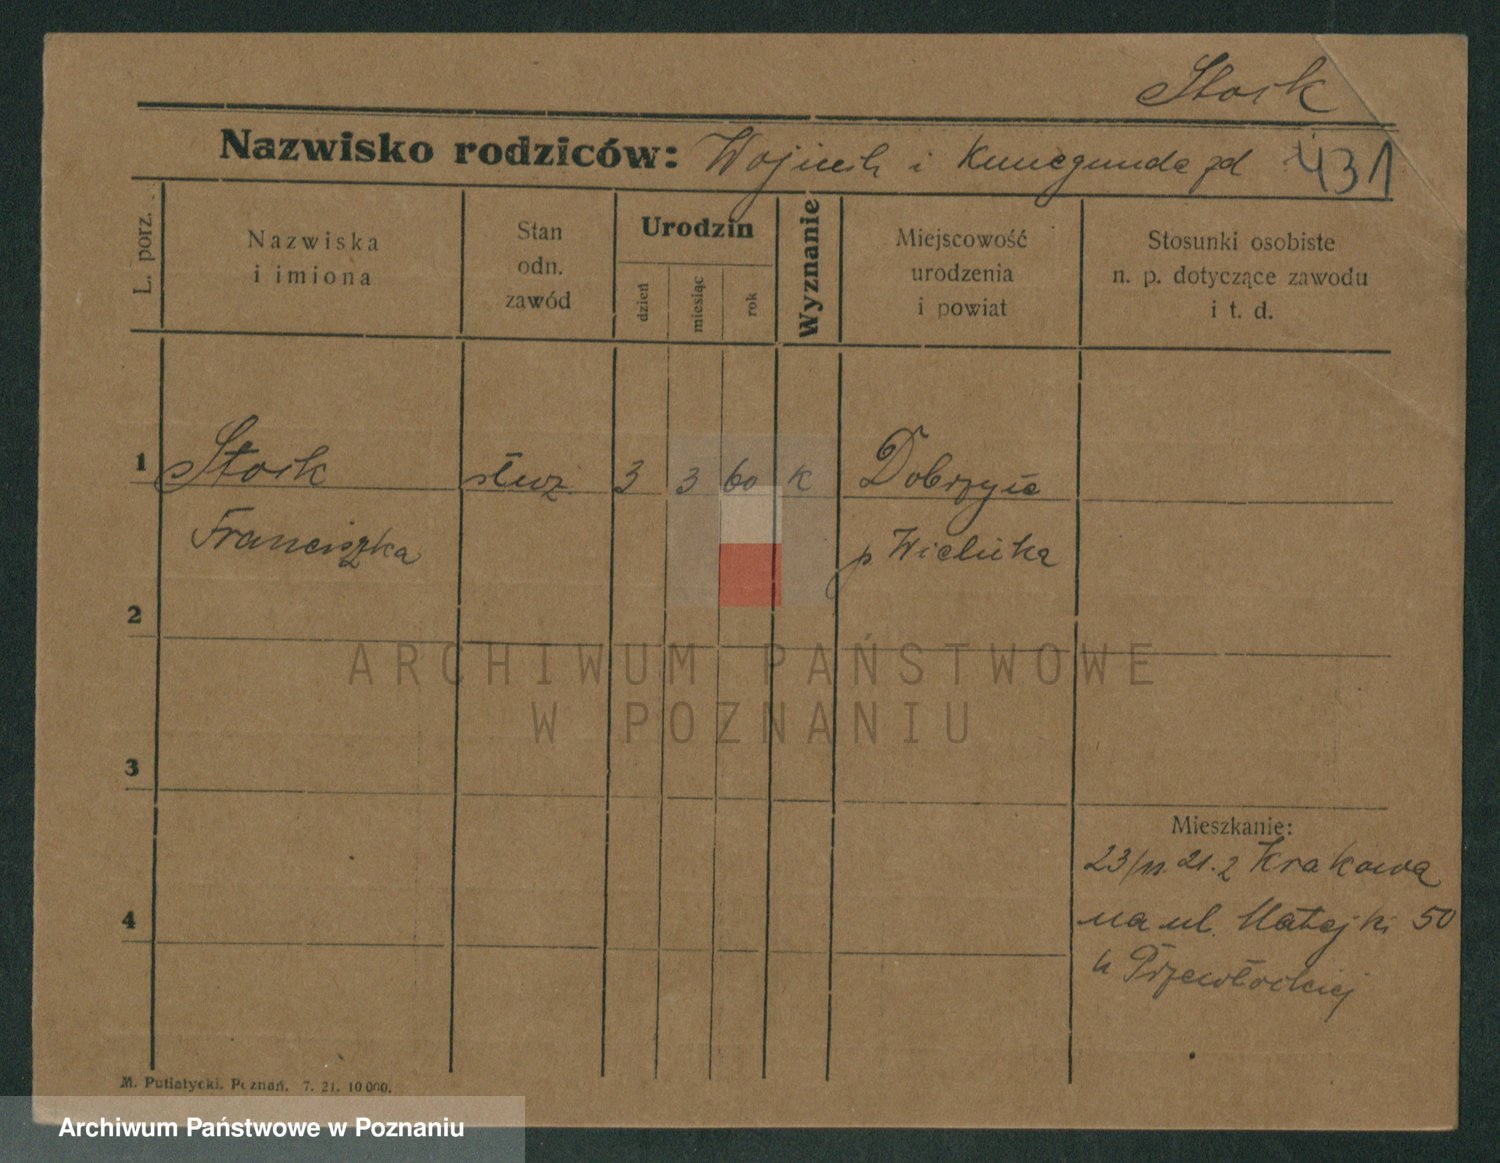 Stork
Nazwisko rodziców: Wojciech i Kunegunda zd 431
L. porz.
Nazwiska
i imiona
Stan
odn.
zawód
Urodzin
dzień
miesiąc
rok
Wyznanie
Miejscowość
urodzenia
i powiat
Stosunki osobiste
n. p. dotyczące zawodu
i t. d.
1 Stork słuz. 3 3 60 K Dobrzyce
Franciszka p Wieliczka
2
3
4
Mieszkanie:
23/11. 21. z Krakowa
na ul. Matejki 50
u Przewłockiej
M. Putiatycki, Poznań. 7. 21. 10 000.
ARCHIWUM PAŃSTWOWE
W POZNANIU
Archiwum Państwowe w Poznaniu